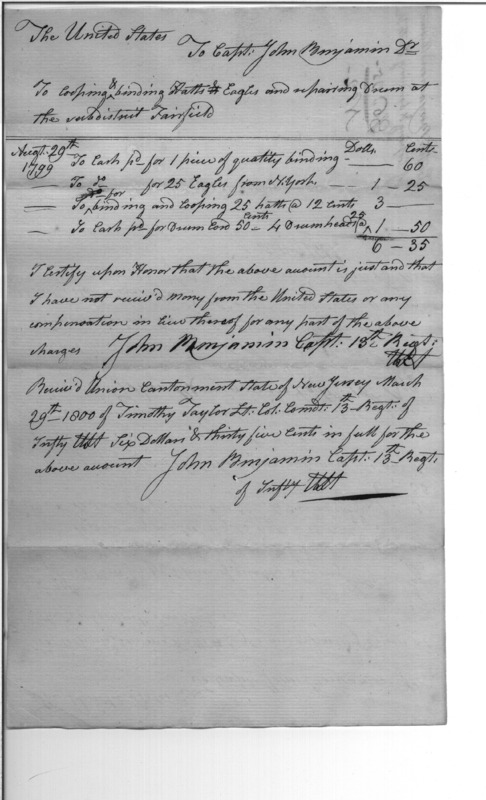 The United States
To Capt: John Benjamin Dr
To Cooping & binding Hatts & Eagles and repairing Drum at
the subdistrict Fairfield
Augt. 29th Dolls. Cents
1799 To Cash pd for 1 piece of quality binding — 60
— To Do for 25 Eagles from N. York, — 1 - 25
— To for binding and Cooping 25 hatts @ 12 Cents 3 —
— To Cash pd for Drum Cord 50 Cents - 4 Drumheads @ 25 1 - 50
6 - 35
I Certify upon Honor that the above account is just and that
I have not receiv'd mony from the United States or any
compensation in lieu thereof for any part of the above
charges John Benjamin Capt: 13th Regt:
Receiv'd Union Cantonment State of New Jersey March
29th 1800 of Timothy Taylor Lt: Col: Comdt: 13th Regt: of
Infty Six Dollars & thirty five Cents in full for the
above amount John Benjamin Capt: 13th Regt:
of Infty